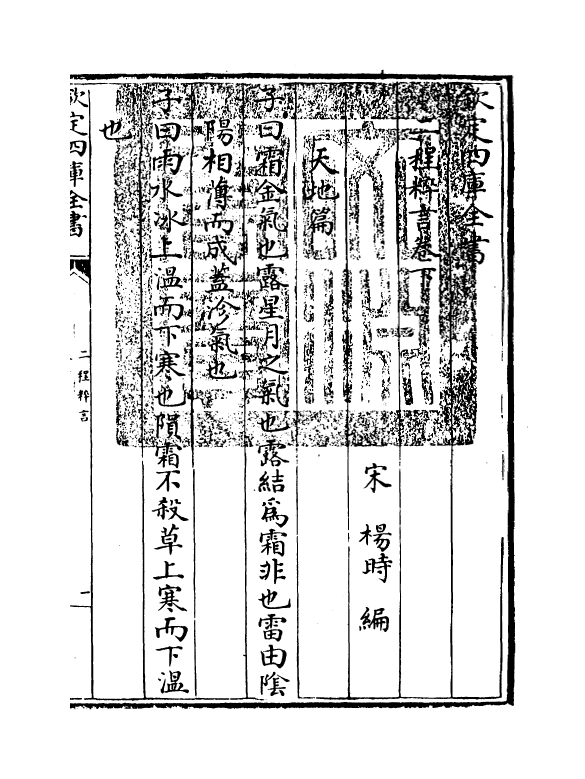 欽定四庫全書
二程粹言卷下
宋 楊時 編
天地篇
子曰霜金氣也露星月之氣也露結爲霜非也雷由陰
陽相薄而成蓋沴氣也
子曰雨水冰上溫而下寒也隕霜不殺草上寒而下溫
也
欽定四庫全書
二程粹言